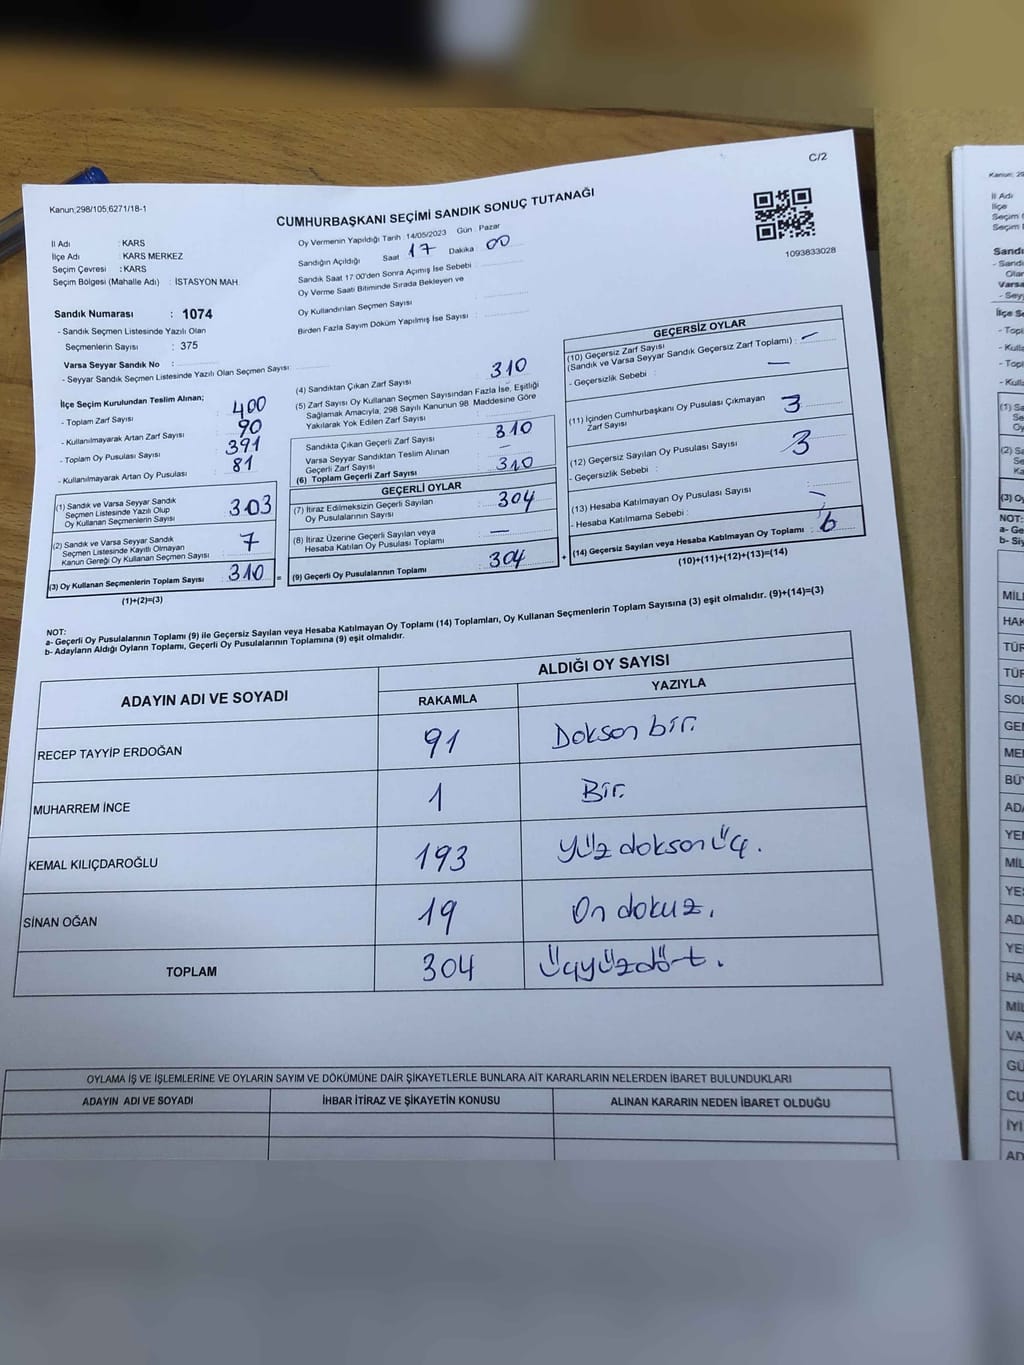 C/2
Kanun;298/105;6271/18-1
CUMHURBAŞKANI SEÇİMİ SANDIK SONUÇ TUTANAĞI
İl Adı : KARS
İlçe Adı : KARS MERKEZ
Seçim Çevresi : KARS
Seçim Bölgesi (Mahalle Adı) : İSTASYON MAH.
Oy Vermenin Yapıldığı Tarih : 14/05/2023 Gün : Pazar
Sandığın Açıldığı Saat 17 Dakika 00
Sandık Saat 17:00'den Sonra Açımış İse Sebebi :
Oy Verme Saati Bitiminde Sırada Bekleyen ve
Oy Kullandırılan Seçmen Sayısı :
Birden Fazla Sayım Döküm Yapılmış İse Sayısı :
1093833028
Sandık Numarası : 1074
- Sandık Seçmen Listesinde Yazılı Olan
Seçmenlerin Sayısı : 375
Varsa Seyyar Sandık No :
- Seyyar Sandık Seçmen Listesinde Yazılı Olan Seçmen Sayısı:
İlçe Seçim Kurulundan Teslim Alınan;
- Toplam Zarf Sayısı : 400
- Kullanılmayarak Artan Zarf Sayısı : 90
- Toplam Oy Pusulası Sayısı : 391
- Kullanılmayarak Artan Oy Pusulası : 81
(1) Sandık ve Varsa Seyyar Sandık
Seçmen Listesinde Yazılı Olup
Oy Kullanan Seçmenlerin Sayısı : 303
(2) Sandık ve Varsa Seyyar Sandık
Seçmen Listesinde Kayıtlı Olmayan
Kanun Gereği Oy Kullanan Seçmen Sayısı : 7
(3) Oy Kullanan Seçmenlerin Toplam Sayısı : 310
(1)+(2)=(3)
(4) Sandıktan Çıkan Zarf Sayısı : 310
(5) Zarf Sayısı Oy Kullanan Seçmen Sayısından Fazla İse, Eşitliği
Sağlamak Amacıyla, 298 Sayılı Kanunun 98. Maddesine Göre
Yakılarak Yok Edilen Zarf Sayısı :
Sandıkta Çıkan Geçerli Zarf Sayısı : 310
Varsa Seyyar Sandıktan Teslim Alınan
Geçerli Zarf Sayısı : —
(6) Toplam Geçerli Zarf Sayısı : 310
GEÇERLİ OYLAR
(7) İtiraz Edilmeksizin Geçerli Sayılan
Oy Pusulalarının Sayısı : 304
(8) İtiraz Üzerine Geçerli Sayılan veya
Hesaba Katılan Oy Pusulası Toplamı : —
(9) Geçerli Oy Pusulalarının Toplamı : 304
GEÇERSİZ OYLAR
(10) Geçersiz Zarf Sayısı
(Sandık ve Varsa Seyyar Sandık Geçersiz Zarf Toplamı) : —
- Geçersizlik Sebebi : —
(11) İçinden Cumhurbaşkanı Oy Pusulası Çıkmayan
Zarf Sayısı : 3
(12) Geçersiz Sayılan Oy Pusulası Sayısı : 3
- Geçersizlik Sebebi :
(13) Hesaba Katılmayan Oy Pusulası Sayısı :
- Hesaba Katılmama Sebebi :
(14) Geçersiz Sayılan veya Hesaba Katılmayan Oy Toplamı : 6
(10)+(11)+(12)+(13)=(14)
NOT:
a- Geçerli Oy Pusulalarının Toplamı (9) ile Geçersiz Sayılan veya Hesaba Katılmayan Oy Toplamı (14) Toplamları, Oy Kullanan Seçmenlerin Toplam Sayısına (3) eşit olmalıdır. (9)+(14)=(3)
b- Adayların Aldığı Oyların Toplamı, Geçerli Oy Pusulalarının Toplamına (9) eşit olmalıdır.
ADAYIN ADI VE SOYADI ALDIĞI OY SAYISI
RAKAMLA YAZIYLA
RECEP TAYYİP ERDOĞAN 91 Doksan bir.
MUHARREM İNCE 1 Bir.
KEMAL KILIÇDAROĞLU 193 Yüz doksan üç.
SİNAN OĞAN 19 On dokuz.
TOPLAM 304 Üçyüzdört.
OYLAMA İŞ VE İŞLEMLERİNE VE OYLARIN SAYIM VE DÖKÜMÜNE DAİR ŞİKAYETLERLE BUNLARA AİT KARARLARIN NELERDEN İBARET BULUNDUKLARI
ADAYIN ADI VE SOYADI İHBAR İTİRAZ VE ŞİKAYETİN KONUSU ALINAN KARARIN NEDEN İBARET OLDUĞU